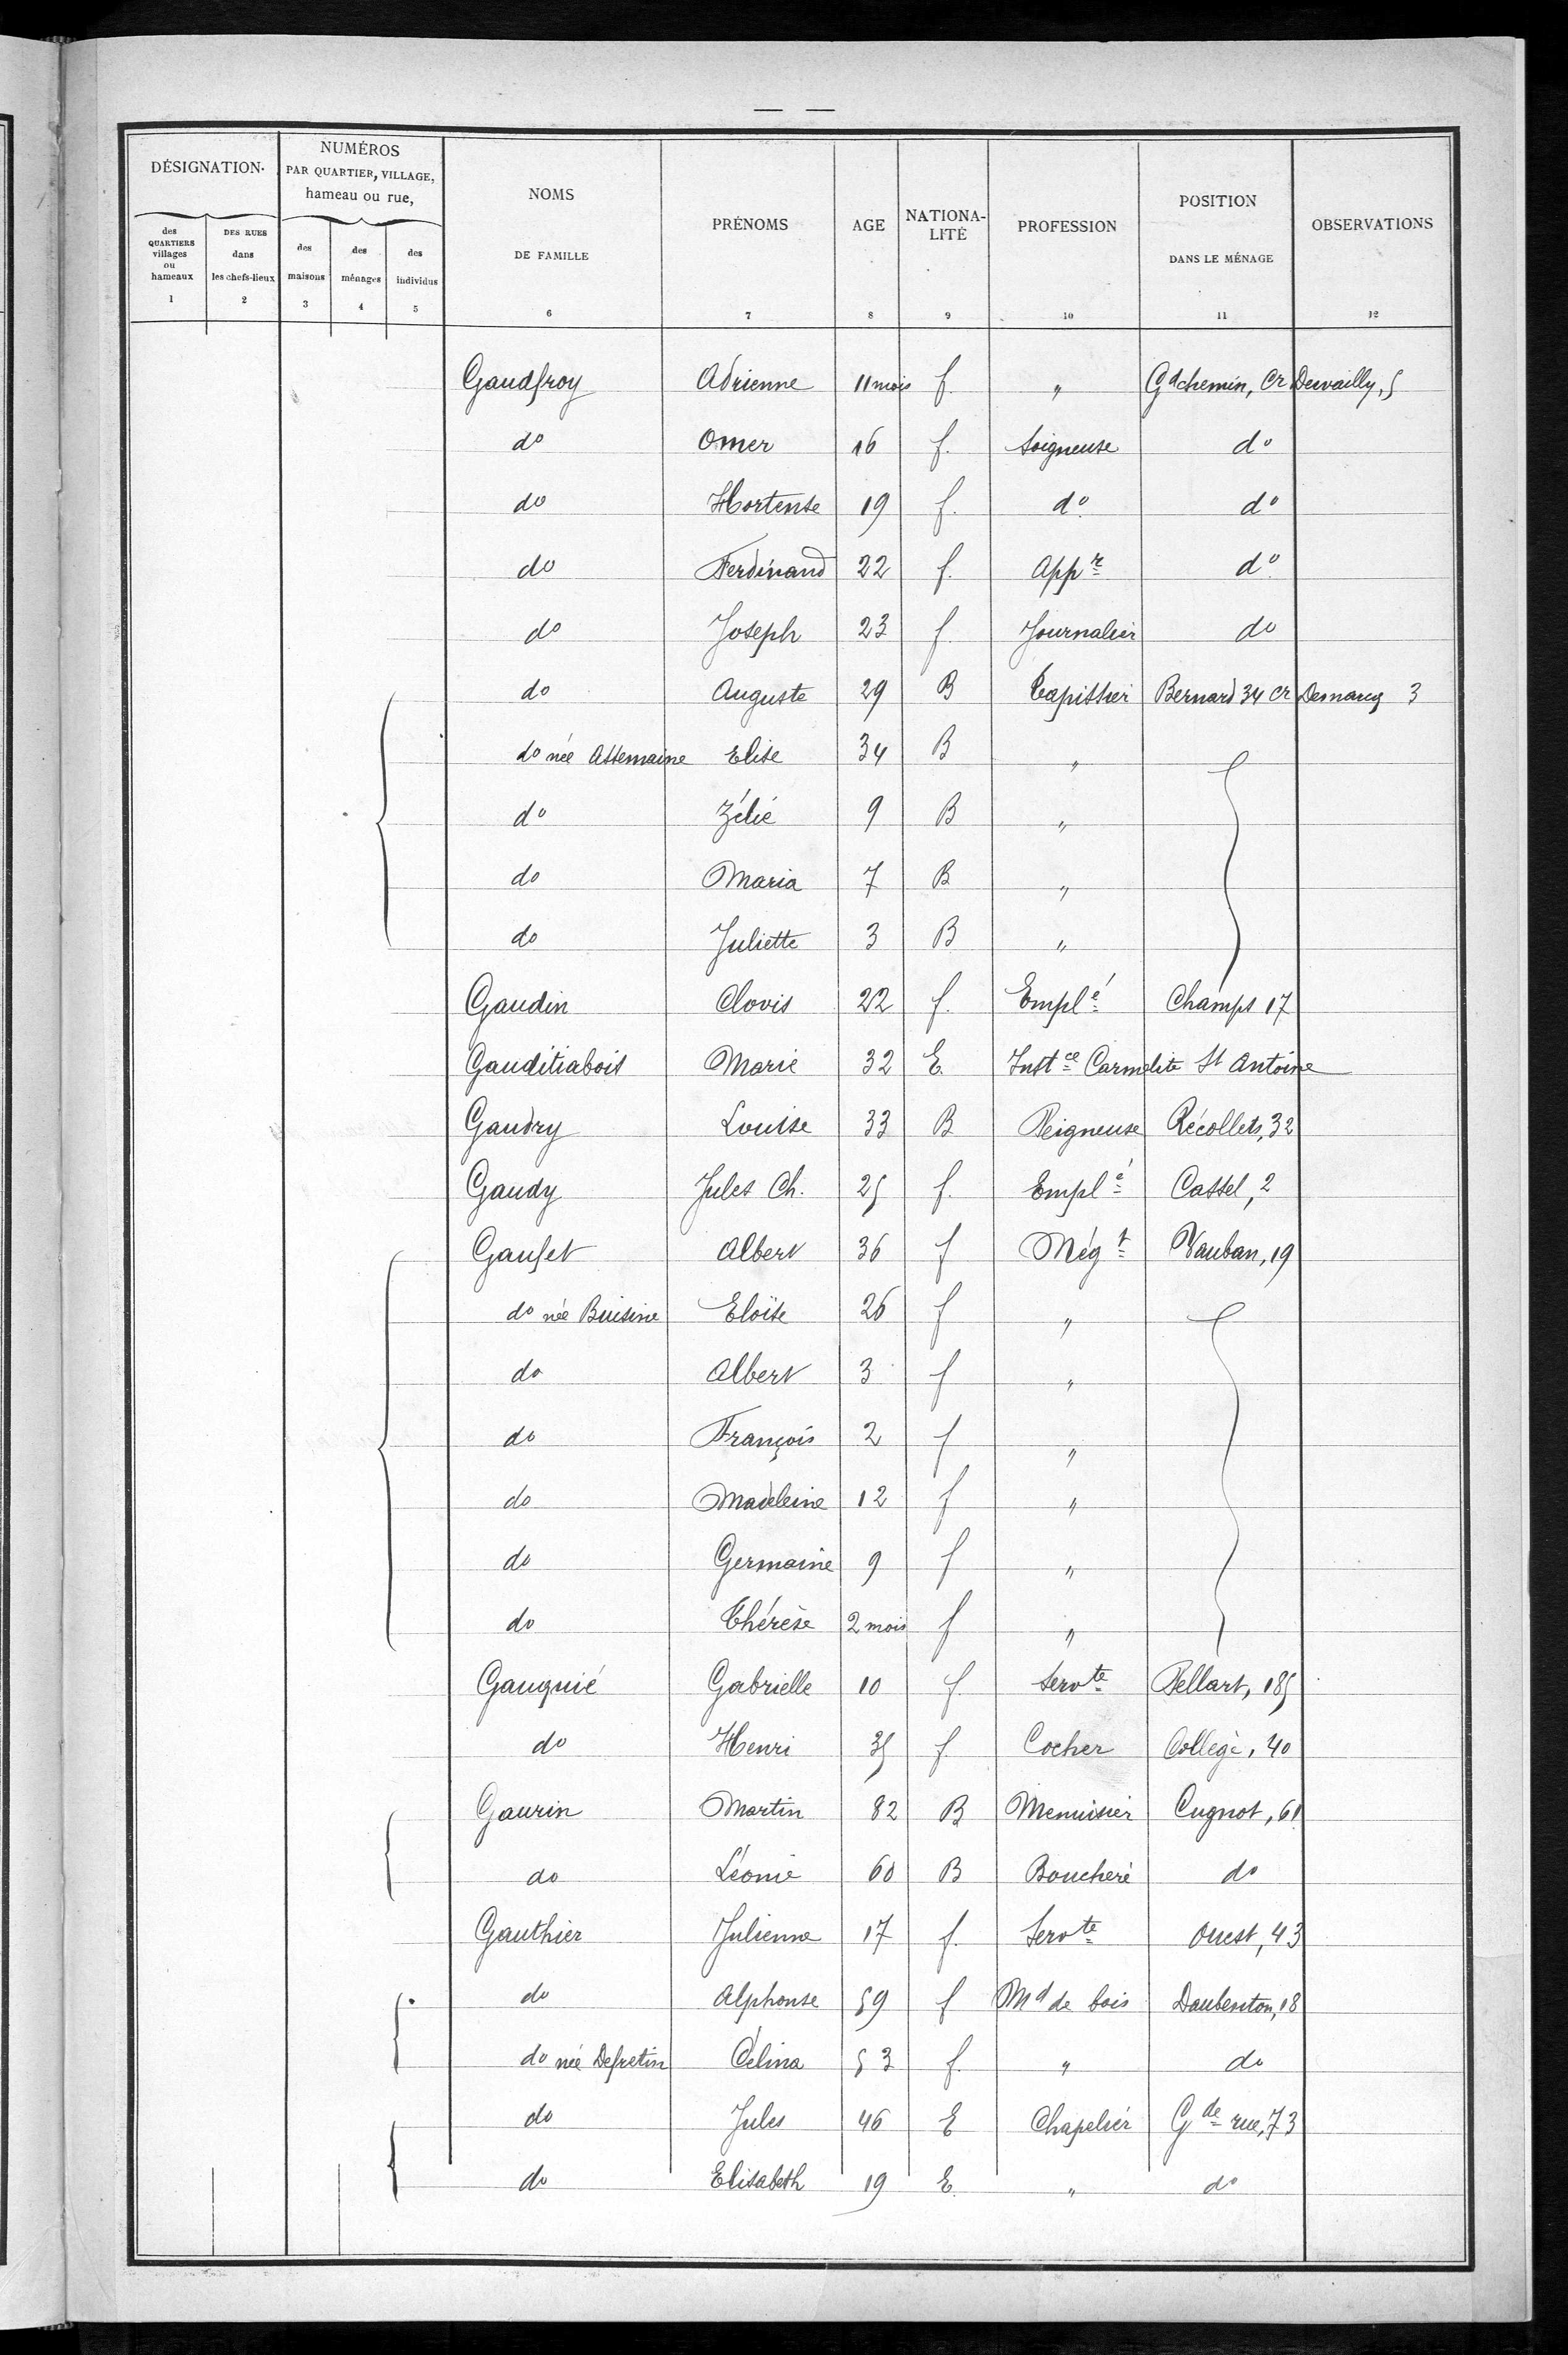 DÉSIGNATION.
NUMÉROS
PAR QUARTIER, VILLAGE,
hameau ou rue,
des
QUARTIERS
villages
ou
hameaux
1
DES RUES
dans
les chefs-lieux
2
des
maisons
3
des
ménages
4
des
individus
5
NOMS
DE FAMILLE
6
PRÉNOMS
7
AGE
8
NATIONA-
LITÉ
9
PROFESSION
10
POSITION
DANS LE MÉNAGE
11
OBSERVATIONS
12
Gaudfroy Adrienne 11 mois f. " Gd chemin, Cr Dewailly, 5
do Omer 16 f. Soigneuse do
do Hortense 19 f. do do
do Ferdinand 22 f. Appr do
do Joseph 23 f. Journalier do
do Auguste 29 B Tapissier Bernard 34 Cr Desmarcq 3
do née Assemaine Elise 34 B "
do Zélie 9 B "
do Maria 7 B "
do Juliette 3 B "
Gaudin Clovis 22 f. Emplé Champs 17
Gauditiabois Marie 32 E. Instce Carmelite St Antoine
Gaudry Louise 33 B Peigneuse Récollets, 32
Gaudy Jules Ch. 25 f. Emplé Cassel, 2
Gaufet Albert 36 f Négt Vauban, 19
do née Buisine Eloïse 26 f "
do Albert 3 f "
do François 2 f "
do Madeleine 12 f "
do Germaine 9 f "
do Thérèse 2 mois f "
Gauquié Gabrielle 10 f. Servte Pellart, 185
do Henri 35 f Cocher Collège, 40
Gaurin Martin 82 B Menuisier Cugnot, 61
do Léonie 60 B Bouchère do
Gauthier Julienne 17 f. Servte Ouest, 43
do Alphonse 59 f Md de bois Daubenton, 18
do née Defretin Célina 53 f. " do
do Jules 46 E Chapelier Gde rue, 73
do Elisabeth 19 E. " do